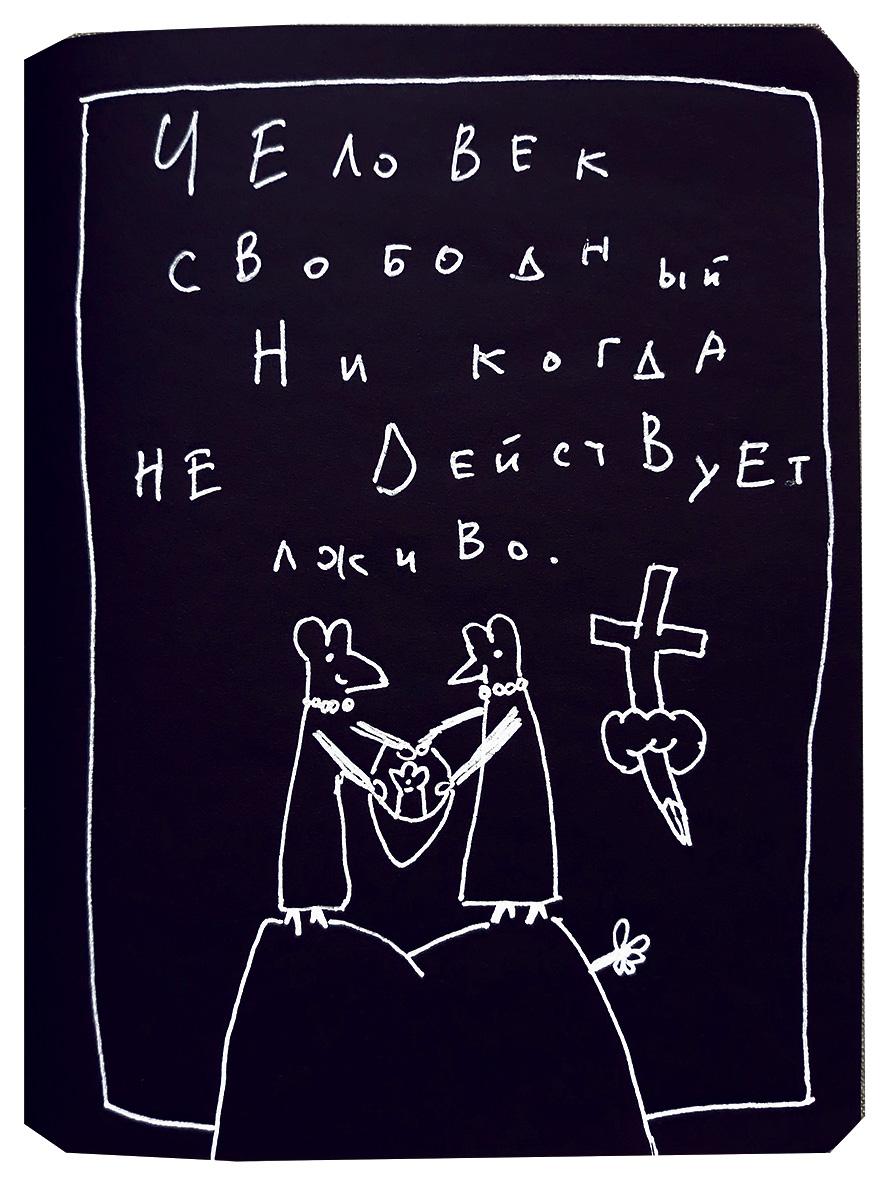 Человек
свободный
Никогда
не Действует
лживо.